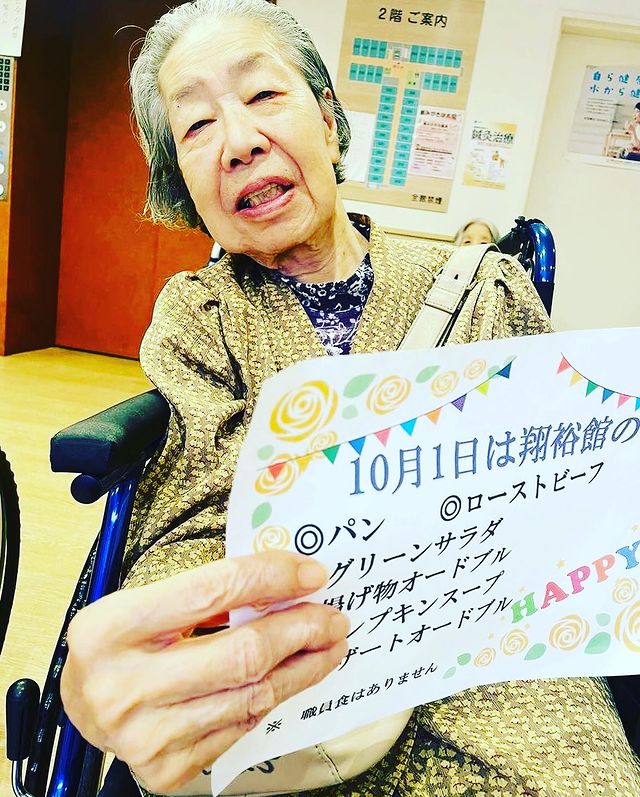 2階 ご案内
全館禁煙
鍼灸治療
自ら健
水から健
10月1日は翔裕館の
◎パン ◎ローストビーフ
グリーンサラダ
揚げ物オードブル
ンプキンスープ
ザートオードブル
HAPPY
※ 職員食はありません